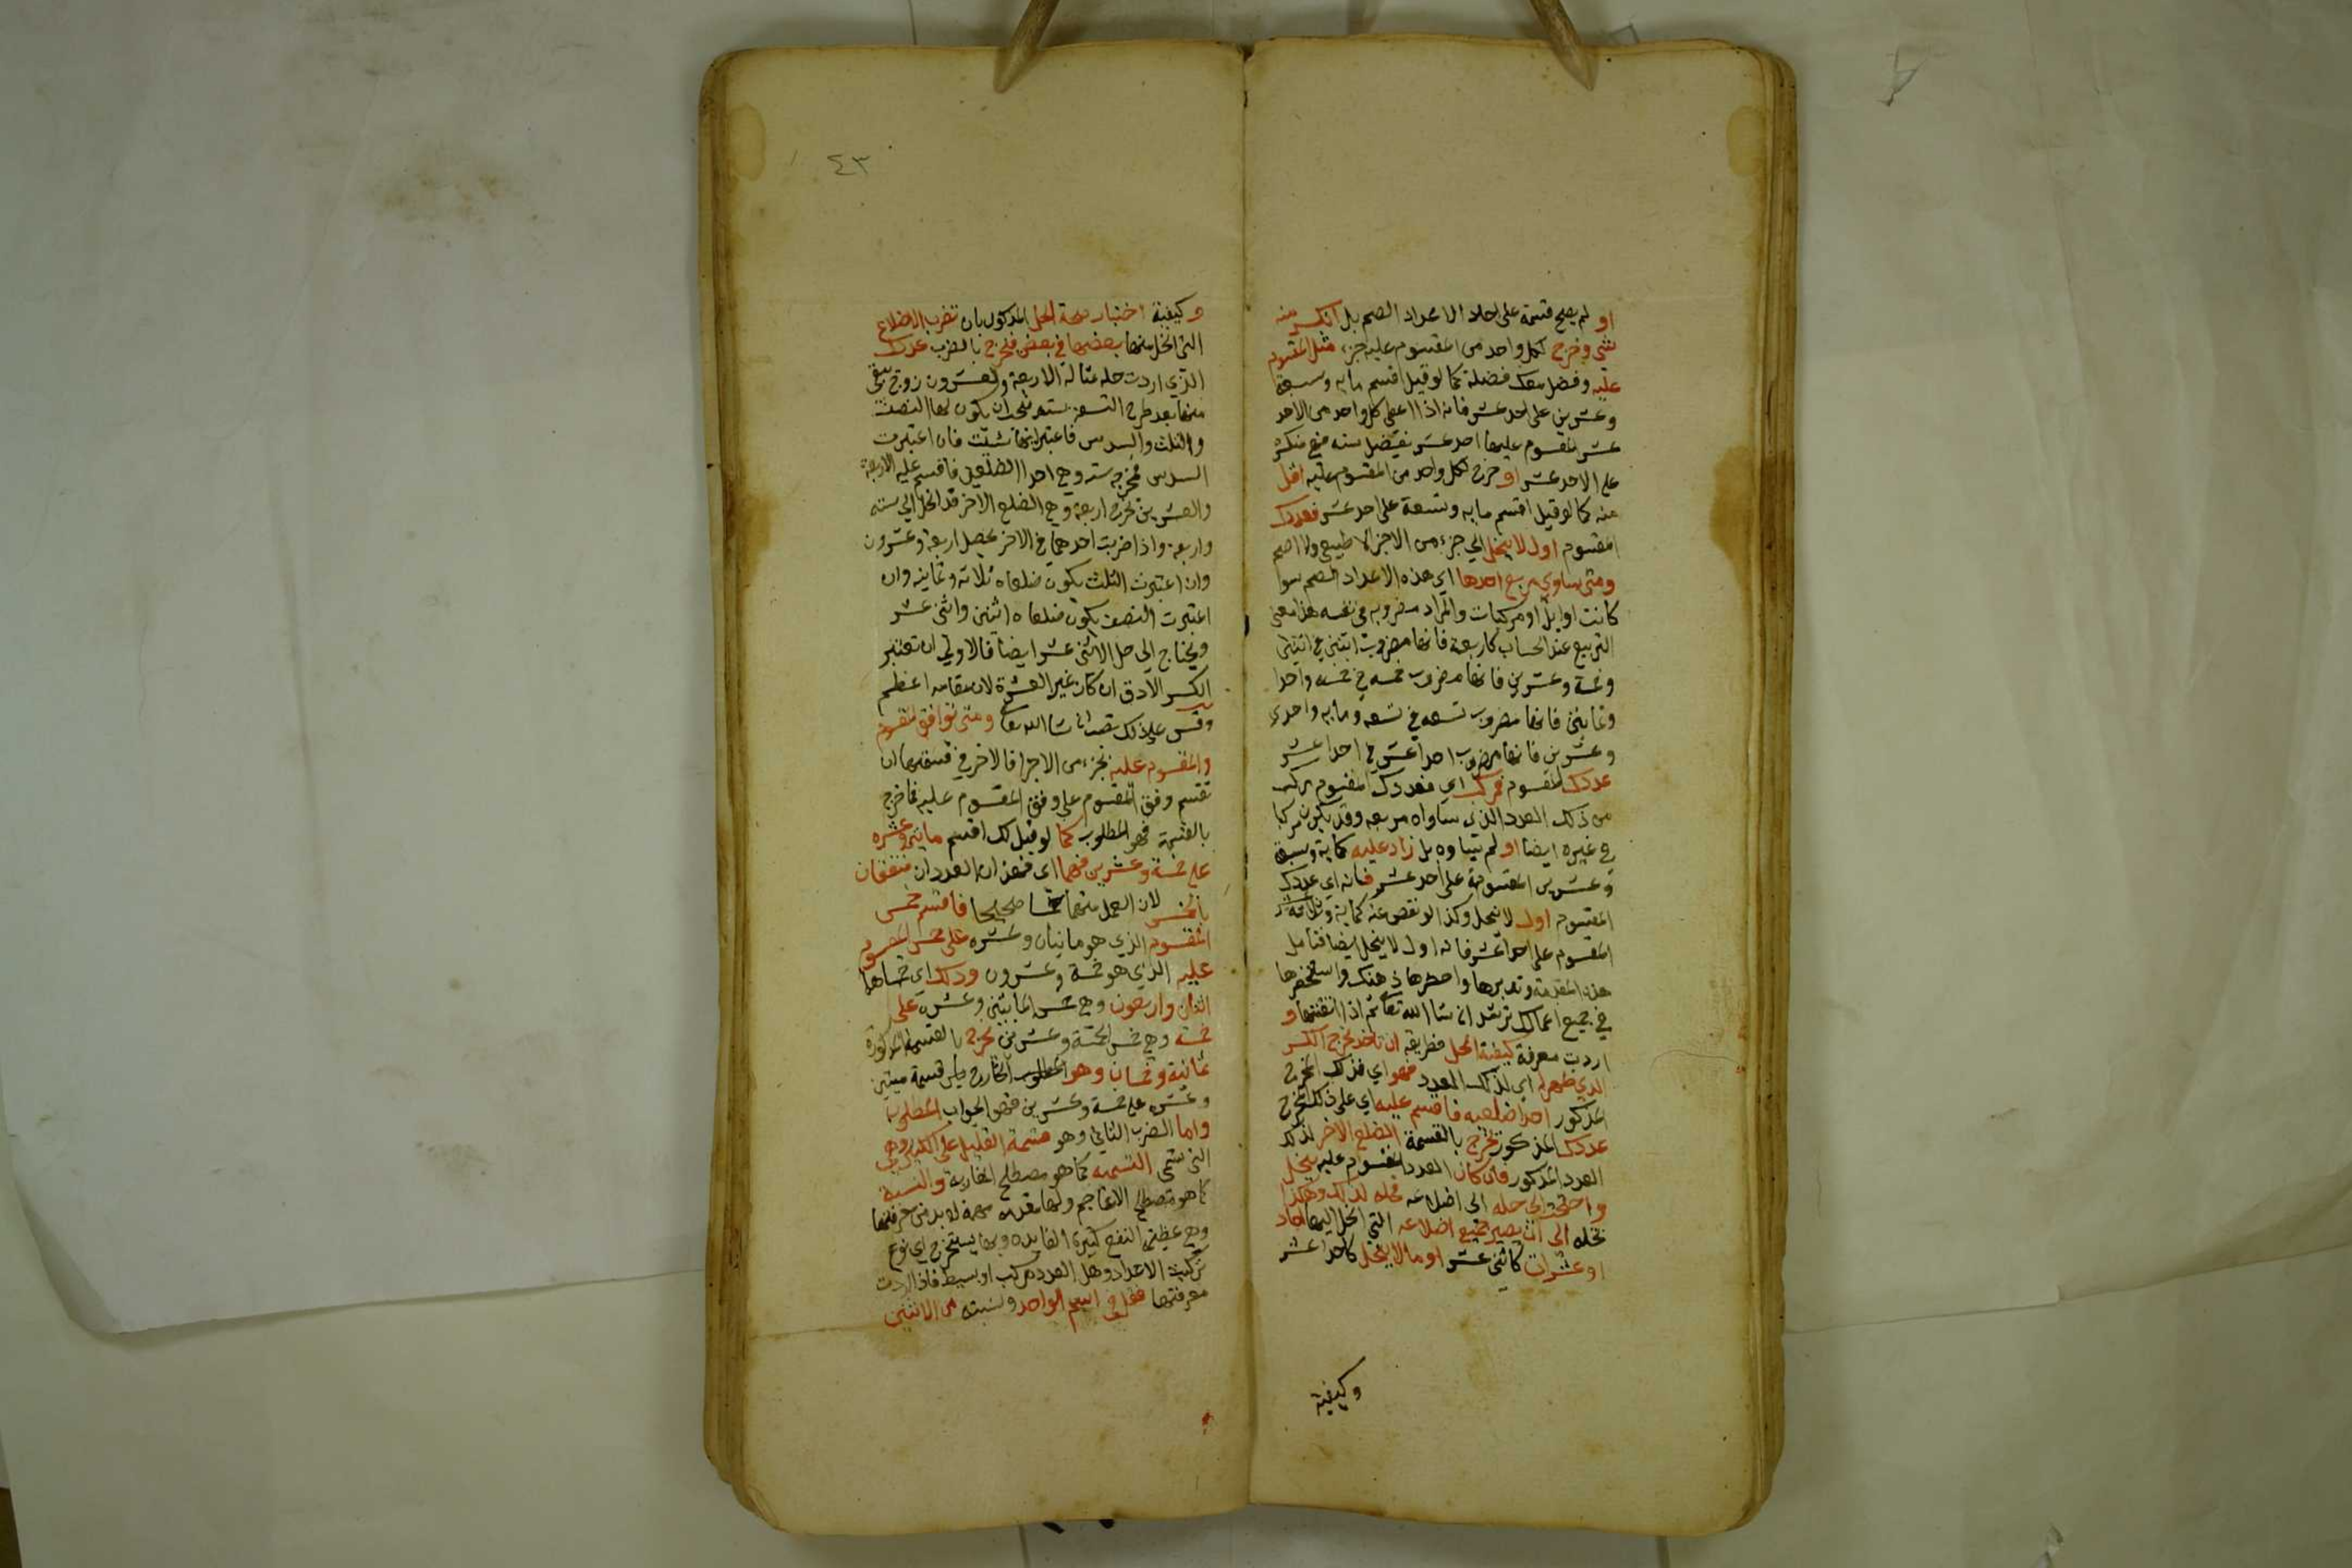 او لم يصح قسمة على احد الاعداد الصم بل انكسر منه
شى وخرج لكل واحد من المقسوم عليه جزء مثل المقسوم
عليه وفضل معك فضلة كما لو قيل اقسم مايه وسبعة
وعشرين على احد عشر فانه اذا اعطى كل واحد من الاحد
عشر المقسوم عليها احد عشر يفضل سته منكسره
على الاحد عشر او خرج لكل واحد من المقسوم عليه اقل
منه كما لو قيل اقسم مايه وتسعة على احد عشر فعددك
المقسوم اول لا ينحل الي جزء من الاجزا لا طبيعى ولا اصم
ومتى ساوي مربع احدها اي هذه الاعداد الصم سوا
كانت اوايل او مركبات والمراد مضروبه فى نفسه هذا معنى
التربيع عند الحساب كاربعة فانها مضروب اثنين في اثنين
وخمسة وعشرين فانها مضروب خمسه في خمسه واحدا
وثمانين فانها مضروب تسعه في تسعه ومايه واحدي
وعشرين فانها مضروب احد عشر في احد عشر
عددك المقسوم فمركب اي فعددك المقسوم مركب
من ذلك العدد الذى ساواه مربعه وقد يكون مركبا
من غيره ايضا او لم يساوه بل زاد عليه كماية وسبعة
وعشرين المقسومة على احد عشر فانه اي عددك
المقسوم اول لا ينحل وكذا لو نقص عنه كماية وثلاثة
المقسوم على احد عشر فانه اول لا ينحل ايضا فتامل
هذه المقدمة وتدبرها واحضرها ذهنك واستحضرها
في جميع اعمالك ترشد ان شا الله تعالى ثم اذا اتقنتها و
اردت معرفة كيفية الحل فطريقه ان تاخذ مخرج الكسر
الذي ظهر له اي لذلك العدد فهو اي فذلك المخرج
المذكور احد اضلعيه فاقسم عليه اي على ذلك المخرج
عددك المذكور يخرج بالقسمة الضلع الاخر لذلك
العدد المذكور فان كان العدد المقسوم عليه ينحل
واحتجت الى حله الى اضلاعه فحله كذلك وهكذا
تحله الى ان يصير جميع اضلاعه التي انحل اليها احاد
او عشرات كاثنى عشر او مالا ينحل كاحد عشر
وكيفية
٤٣
وكيفية اختبار صحة الحل المذكور بان تضرب الاضلاع
التى انحل منها بعضها في بعض فيخرج بالضرب عددك
الذي اردت حله مثاله الاربعة والعشرون زوج يبقى
منها بعد طرح التسعة سته فيجب ان يكون لها النصف
والثلث والسدس فاعتبر ايها شئت فان اعتبرت
السدس فمخرجه سته وهي احد الضلعين فاقسم عليه الاربعة
والعشرين تخرج اربعة وهي الضلع الاخر فقد انحل الي سته
واربعة واذا ضربت احدهما في الاخر يحصل اربعة وعشرون
وان اعتبرت الثلث يكون ضلعاه ثلاثة وثمانيه وان
اعتبرت النصف يكون ضلعاه اثنين واثني عشر
ويحتاج الى حل الاثنى عشر ايضا فالاولي ان تعتبر
الكسر الادق ان كان غير العشرة لان مقامه اعظم
وقس علي ذلك تصب ان شا الله تعالى ومتى توافق المقسوم
والمقسوم عليه بجزء من الاجزا فالاخرى في قسمتهما ان
تقسم وفق المقسوم على وفق المقسوم عليه فما خرج
بالقسمة فهو المطلوب كما لو قيل لك اقسم مايتين وعشره
على خمسة وعشرين فهما اى فهذان العددان متفقان
بالخمس لان لكل منهما خمسا صحيحا فاقسم خمس
المقسوم الذي هو مايتان وعشره على خمس المقسوم
عليه الذي هو خمسة وعشرون وذلك اي خمساهما
اثنان واربعون وهي خمس المايتين وعشره على
خمسة وهي خمس الخمسة وعشرين يخرج بالقسمة المذكورة
ثمانية وخمسان وهو المطلوب الخارج من قسمة ميتين
وعشره على خمسة وعشرين فهو الجواب المطلوب
واما الضرب الثاني وهو قسمة القليل على الكثير وهي
التى تسمى التسميه كما هو مصطلح المغاربة والنسبة
كما هو مصطلح الاعاجم ولها مقدمه مهمة لا بد من معرفتها
وهي عظيمة النفع كثيرة الفايده وبها يستخرج اي نوع
تركيب الاعداد وهل العدد مركب او بسيط فاذا اردت
معرفتها فقل في اسم الواحد ونسبته من الاثنين